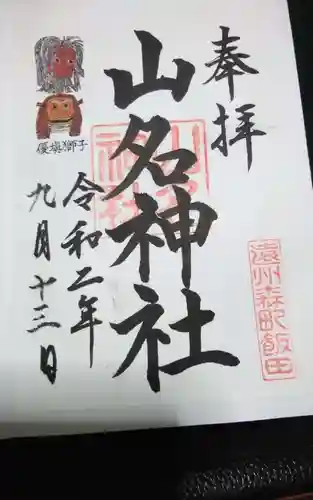 奉拝
遠州森町飯田
山名神社
優填獅子
令和二年
九月十三日